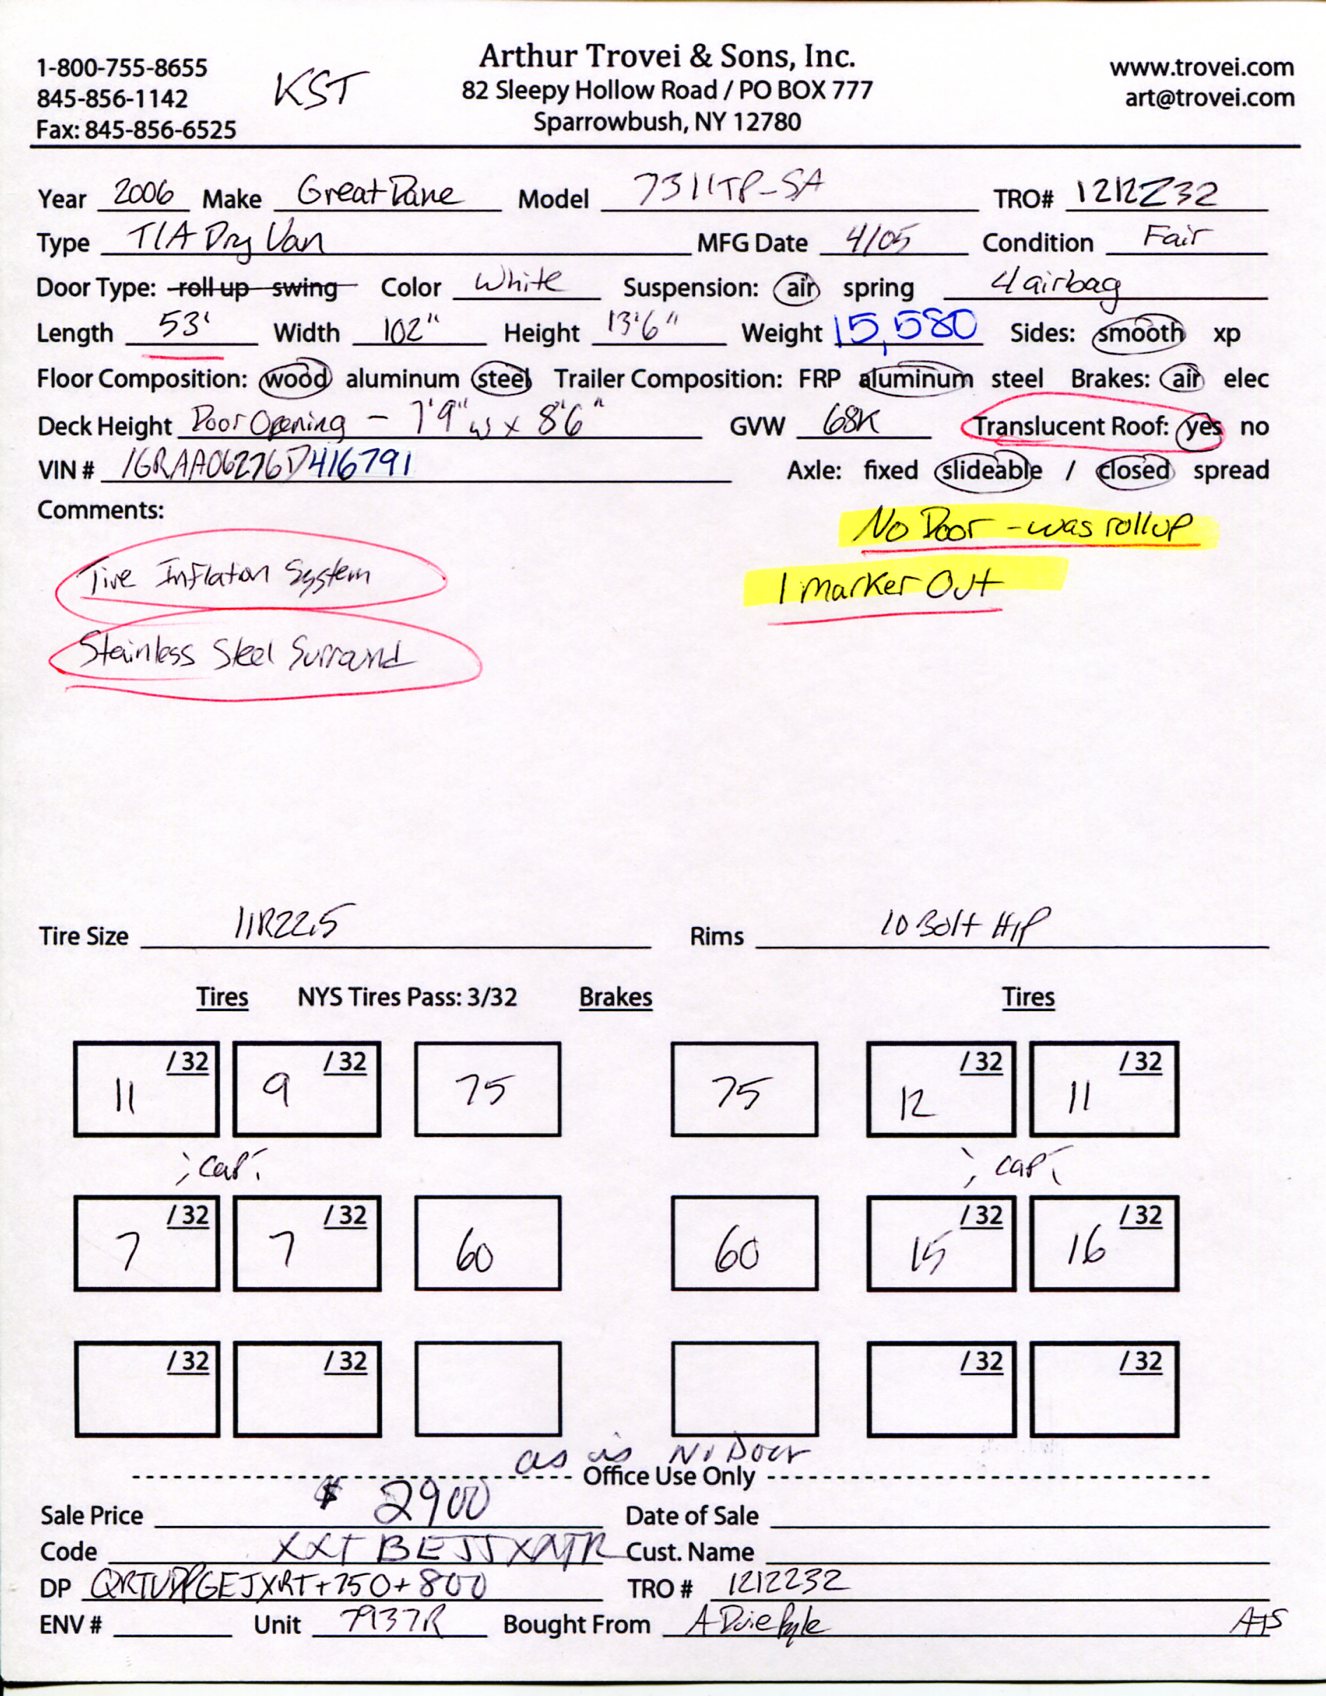 1-800-755-8655
845-856-1142
Fax: 845-856-6525
KST
Arthur Trovei & Sons, Inc.
82 Sleepy Hollow Road / PO BOX 777
Sparrowbush, NY 12780
www.trovei.com
art@trovei.com
Year 2006 Make Great Dane Model 7311TP-SA TRO# 1212232
Type T/A Dry Van MFG Date 4/05 Condition Fair
Door Type: roll up swing Color White Suspension: air spring 4 airbag
Length 53' Width 102" Height 13'6" Weight 15,580 Sides: smooth xp
Floor Composition: wood aluminum steel Trailer Composition: FRP aluminum steel Brakes: air elec
Deck Height Door Opening - 7'9" w x 8'6" GVW 68K Translucent Roof: yes no
VIN # 1GRAA06276D416791 Axle: fixed slideable / closed spread
Comments:
No Door - was rollup
Tire Inflaton System
1 marker Out
Stainless Steel Surround
Tire Size 11R22.5 Rims 10 Bolt H/P
Tires NYS Tires Pass: 3/32 Brakes Tires
11 /32 9 /32 75 75 12 /32 11 /32
; cap. ; cap.
7 /32 7 /32 60 60 15 /32 16 /32
/32 /32 /32 /32
as is No Door
Office Use Only
Sale Price $ 2900 Date of Sale
Code Cust. Name
DP +750+800 TRO # 1212232
ENV # Unit 7937R Bought From A Duie Pyle ATS